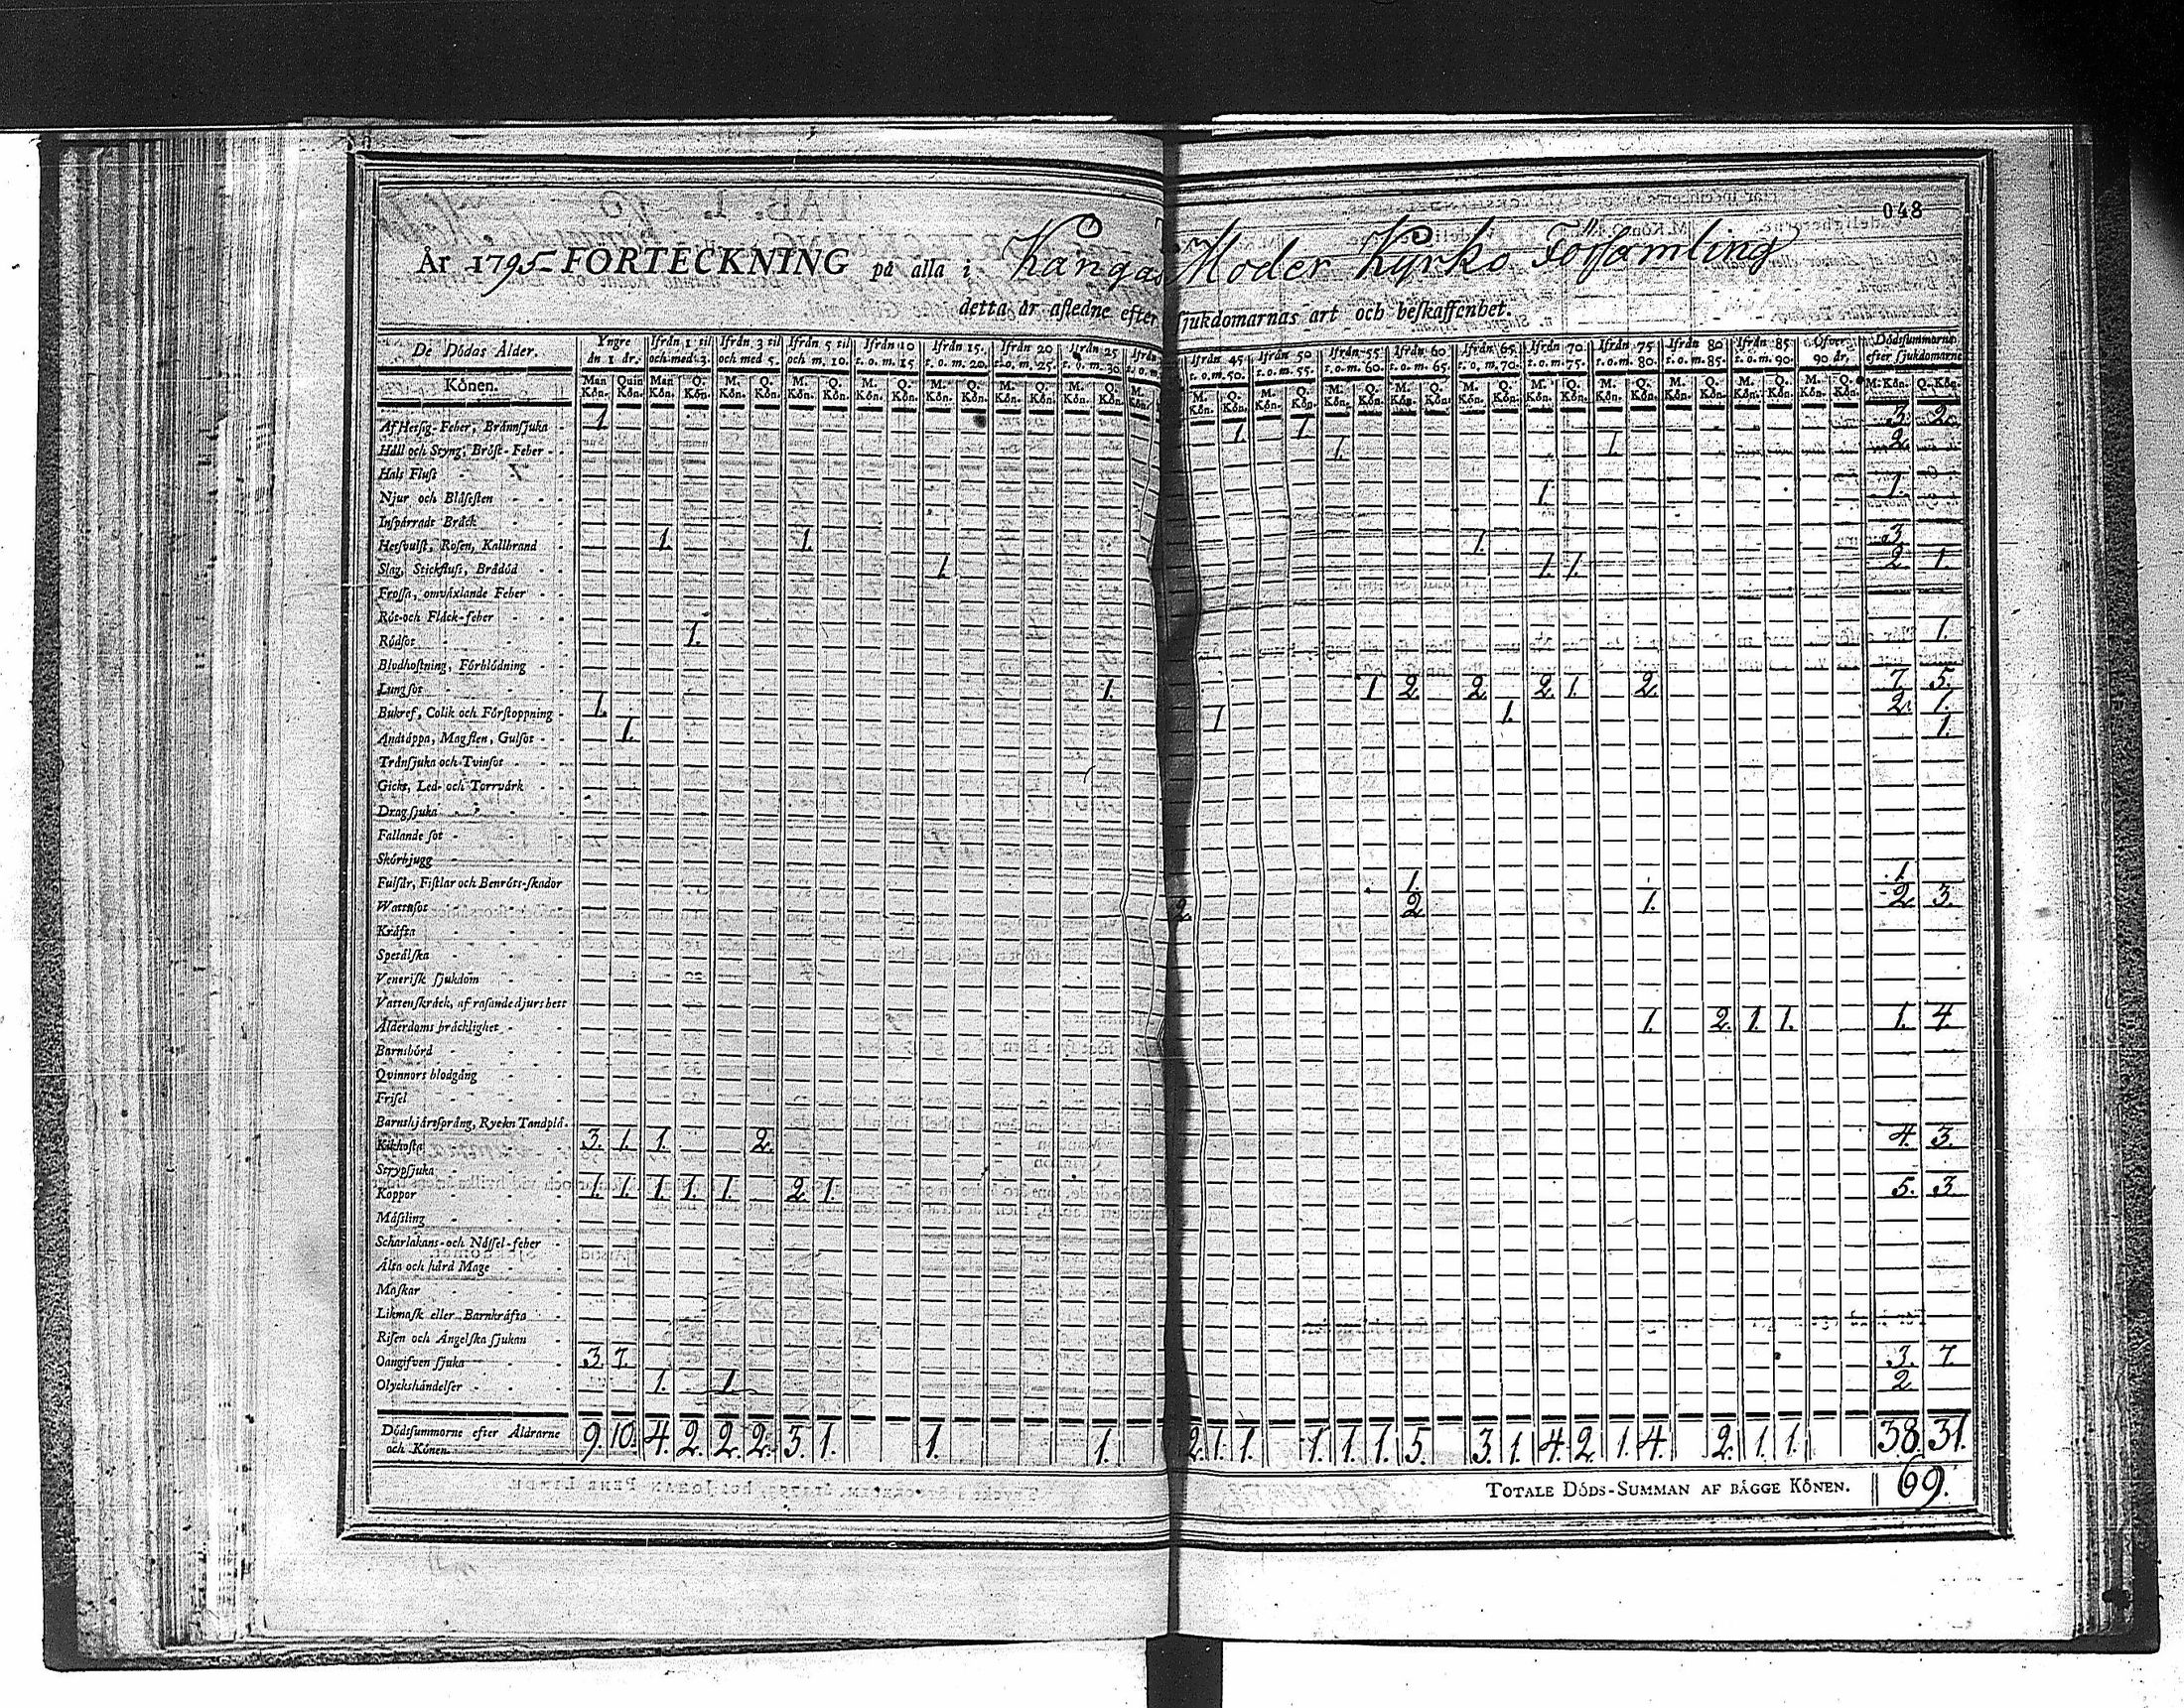 048
År 1795 FÖRTECKNING på alla i Kangas Moder Kyrko Församling
detta år afledne efter sjukdomarnas art och beskaffenhet.
De Dödas Ålder. Yngre än 1 år. Ifrån 1 til och med 3. Ifrån 3 til och med 5. Ifrån 5 til och m. 10. Ifrån 10 t. o. m. 15. Ifrån 15. t. o. m. 20. Ifrån 20 t. o. m. 25. Ifrån 25 t. o. m. 30. Ifrån t. o. m. Ifrån 45 t. o. m. 50. Ifrån 50 t. o. m. 55. Ifrån 55 t. o. m. 60. Ifrån 60 t. o. m. 65. Ifrån 65. t. o. m. 70. Ifrån 70 t. o. m. 75. Ifrån 75 t. o. m. 80. Ifrån 80 t. o. m. 85. Ifrån 85 t. o. m. 90. Öfver 90 år. Dödssummorne efter sjukdomarne
Könen. Man Kön. Quin Kön. Man Kön. Q. Kön. M. Kön. Q. Kön. M. Kön. Q. Kön. M. Kön. Q. Kön. M. Kön. Q. Kön. M. Kön. Q. Kön. M. Kön. Q. Kön. M. Kön. M. Kön. Q. Kön. M. Kön. Q. Kön. M. Kön. Q. Kön. M. Kön. Q. Kön. M. Kön. Q. Kön. M. Kön. Q. Kön. M. Kön. Q. Kön. M. Kön. Q. Kön. M. Kön. Q. Kön. M. Kön. Q. Kön. M. Kön. Q. Kön.
Af Hetsig-Feber, Brännsjuka 1 1. 1. 3. 2.
Håll och Styng, Bröst-Feber 1. 1. 2.
Hals Flusf
Njur och Blåsesten 1. 1.
Inspärradt Bråck
Hetsvulst, Rosen, Kallbrand 1. 1. 1. 3.
Slag, Stickfluss, Brådöd 1. 1. 1. 2. 1.
Frossa, omväxlande Feber
Röt-och Fläck-feber
Rödsot 1. 1.
Blodhostning, Förblödning
Lungsot 1. 1 2. 2. 2. 1. 2. 7. 5.
Bukref, Colik och Förstoppning 1. 1 1. 2. 1.
Andtäppa, Magsten, Gulsot 1. 1.
Trånsjuka och Tvinsot
Gickt, Led- och Torrvärk
Dragsjuka
Fallande sot
Skörbjugg
Fulsår, Fistlar och Benröts-skador 1. 1.
Wattusot 2. 2 1. 2. 3.
Kräfta
Spetälska
Venerisk sjukdom
Vattenskräck, af rasande djurs bett
Ålderdoms bräcklighet 1. 2. 1. 1. 1. 4.
Barnsbörd
Qvinnors blodgång
Frisel
Barnshjärtsprång, Ryckn Tandplå.
Kikhosta 3. 1. 1. 2. 4. 3.
Strypsjuka
Koppor 1. 1. 1. 1. 1. 2. 1. 5. 3.
Mässling
Scharlakans- och Nässel-feber
Älta och hård Mage
Maskar
Likmask eller Barnkräfta
Risen och Ängelska sjukan
Oangifven sjuka 3. 7. 3. 7.
Olyckshändelser 1. 1. 2
Dödssummorne efter Åldrarne och Könen. 9. 10. 4. 2. 2. 2. 3. 1. 1. 1. 2. 1. 1. 1. 1. 1. 5. 3. 1. 4. 2. 1. 4. 2. 1. 1. 38. 31.
TOTALE DÖDS-SUMMAN AF BÅGGE KÖNEN. 69.